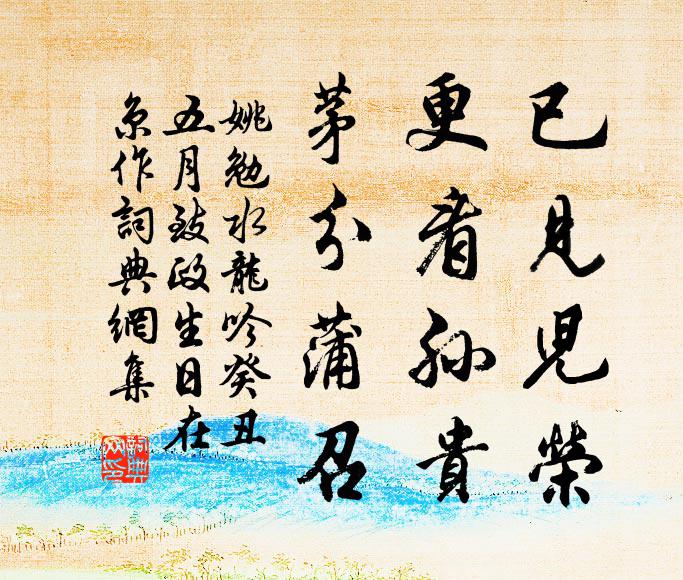 已見兒榮
更看孫貴
茅分蒲召
姚勉水龍吟癸丑
五月致政生日在
京作詞典網集